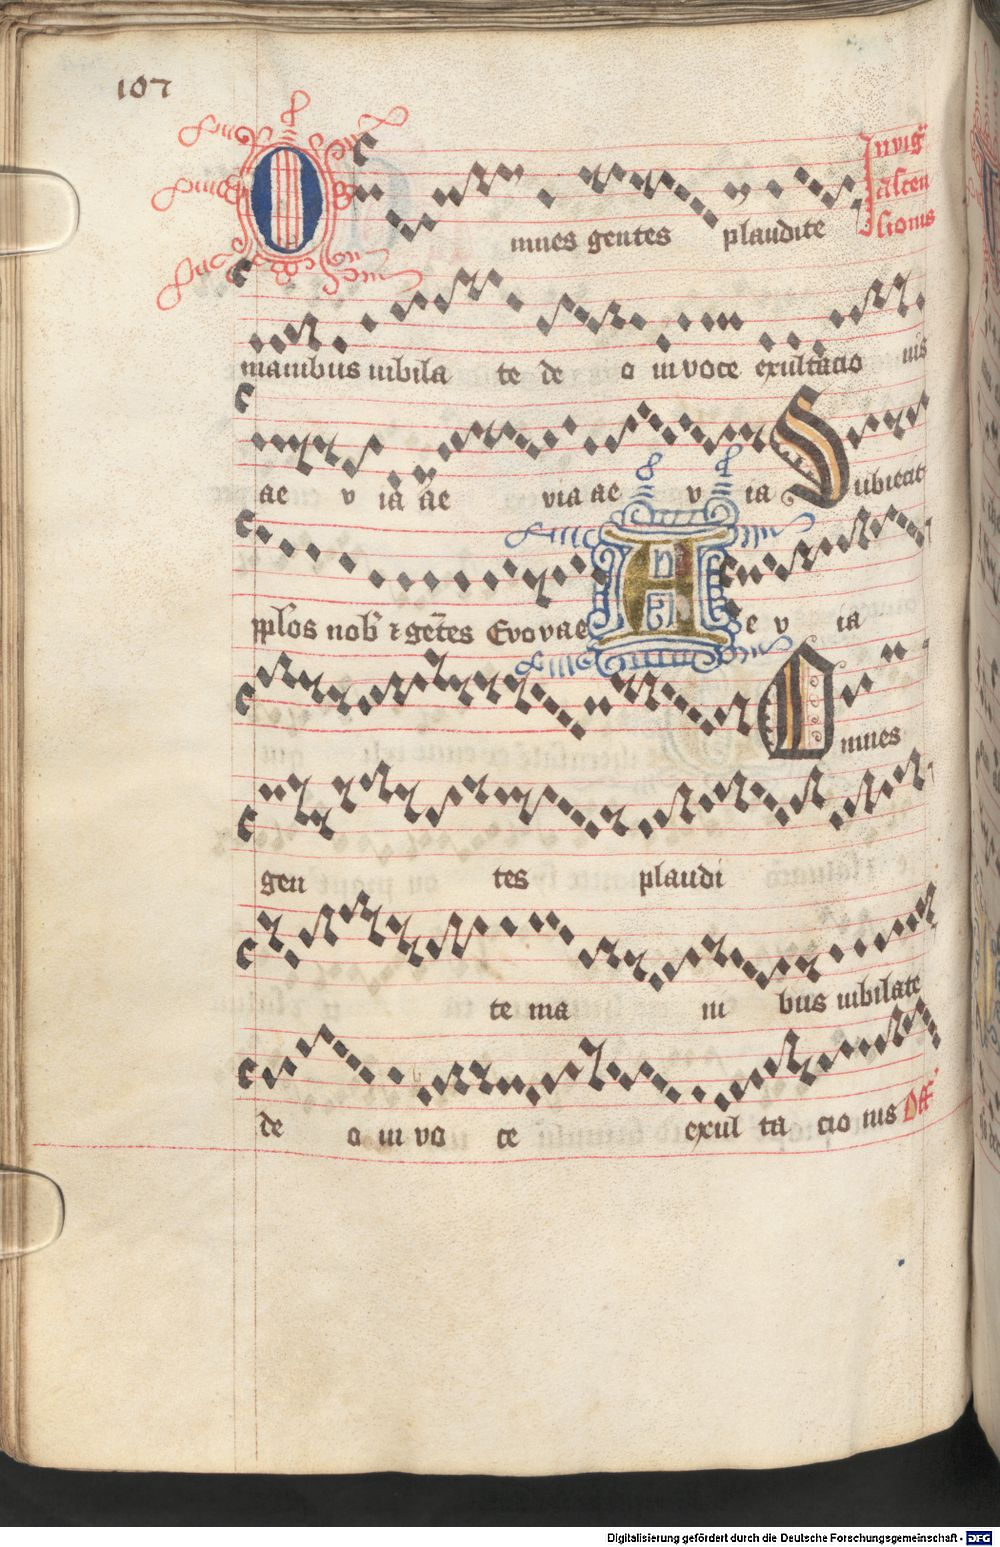 107
In vigᷓ
O mnes gentes plaudite
ascen
sionis
manibus iubila te de o in voce exultacio nis
ae v ia ae via ae v ia Subiecit
pplos nob̄ ⁊ gētes Evovae A e v ia
Omnes
gen tes plaudi
te ma ni bus iubilate
de o in vo ce exul ta cio nis Off
Digitalisierung gefördert durch die Deutsche Forschungsgemeinschaft - DFG